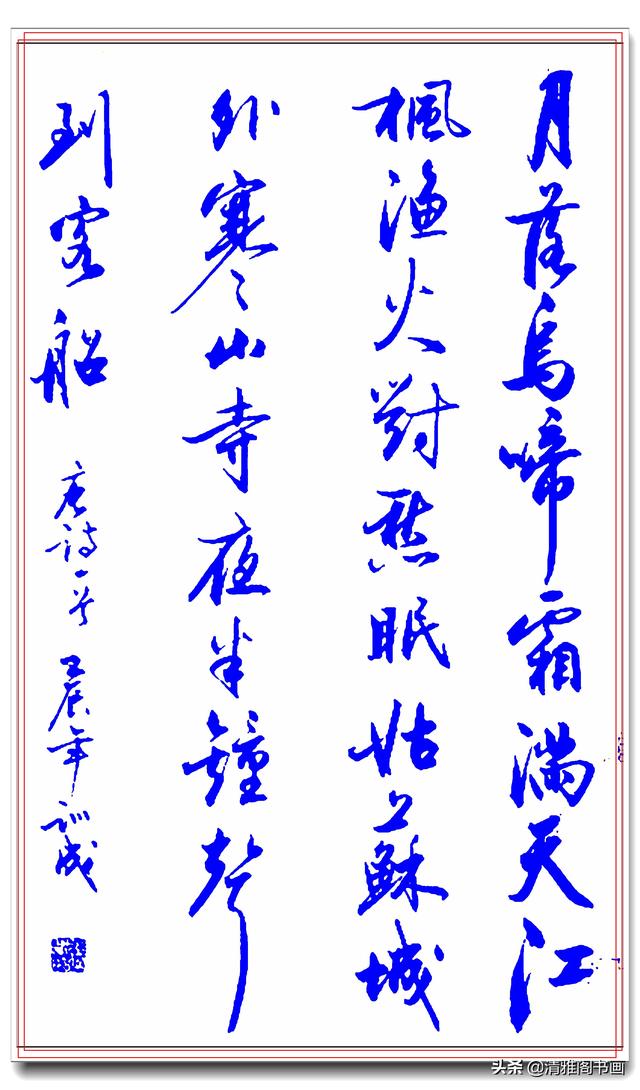 月落烏啼霜滿天江
楓漁火對愁眠姑蘇城
外寒山寺夜半鐘聲
到客船
唐詩一首 壬辰年 訓成
头条 @清雅阁书画